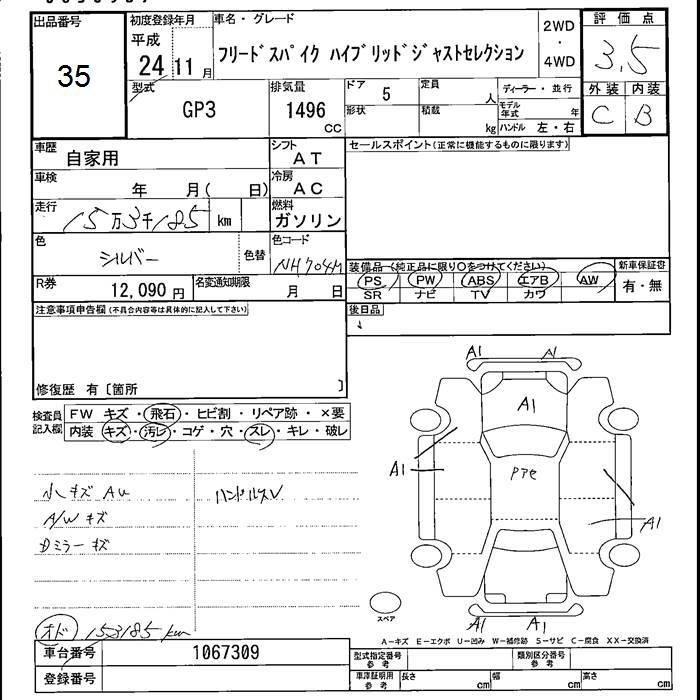 出品番号
35
初度登録年月
平成
24 11 月
車名・グレード
フリードスパイク ハイブリッドジャストセレクション
2WD
・
4WD
評価点
3.5
外装 内装
C B
型式
GP3
排気量
1496
CC
ドア 5
形状
定員
人
積載
kg
ディーラー・並行
モデル年式 年
ハンドル 左・右
車歴 自家用
シフト
AT
セールスポイント(正常に機能するものに限ります)
車検 年 月( 日)
冷房
AC
走行 15万3千185 km
燃料
ガソリン
色 シルバー
色替
色コード
NH704M
装備品(純正品に限り○をつけてください)
PS PW ABS エアB AW
SR ナビ TV カワ
新車保証書
有・無
R券 12,090 円
名変通知期限 月 日
後日品
注意事項申告欄(不具合内容等は具体的に記入して下さい)
修復歴 有〔箇所 〕
検査員
記入欄
FW キズ・飛石・ヒビ割・リペア跡・×要
内装 キズ・汚レ・コゲ・穴・スレ・キレ・破レ
小キズ AU
ハンドルスレ
A/W キズ
Dミラーキズ
オド 153185 km
A1 A1
A1
A1
A1
A1 A1
スペア
A-キズ E-エクボ U-凹み W-補修跡 S-サビ C-腐食 XX-交換済
車台番号 1067309
登録番号
型式指定番号
参考
類別区分番号
参考
車庫証明用
参考
長さ cm 幅 cm 高さ cm